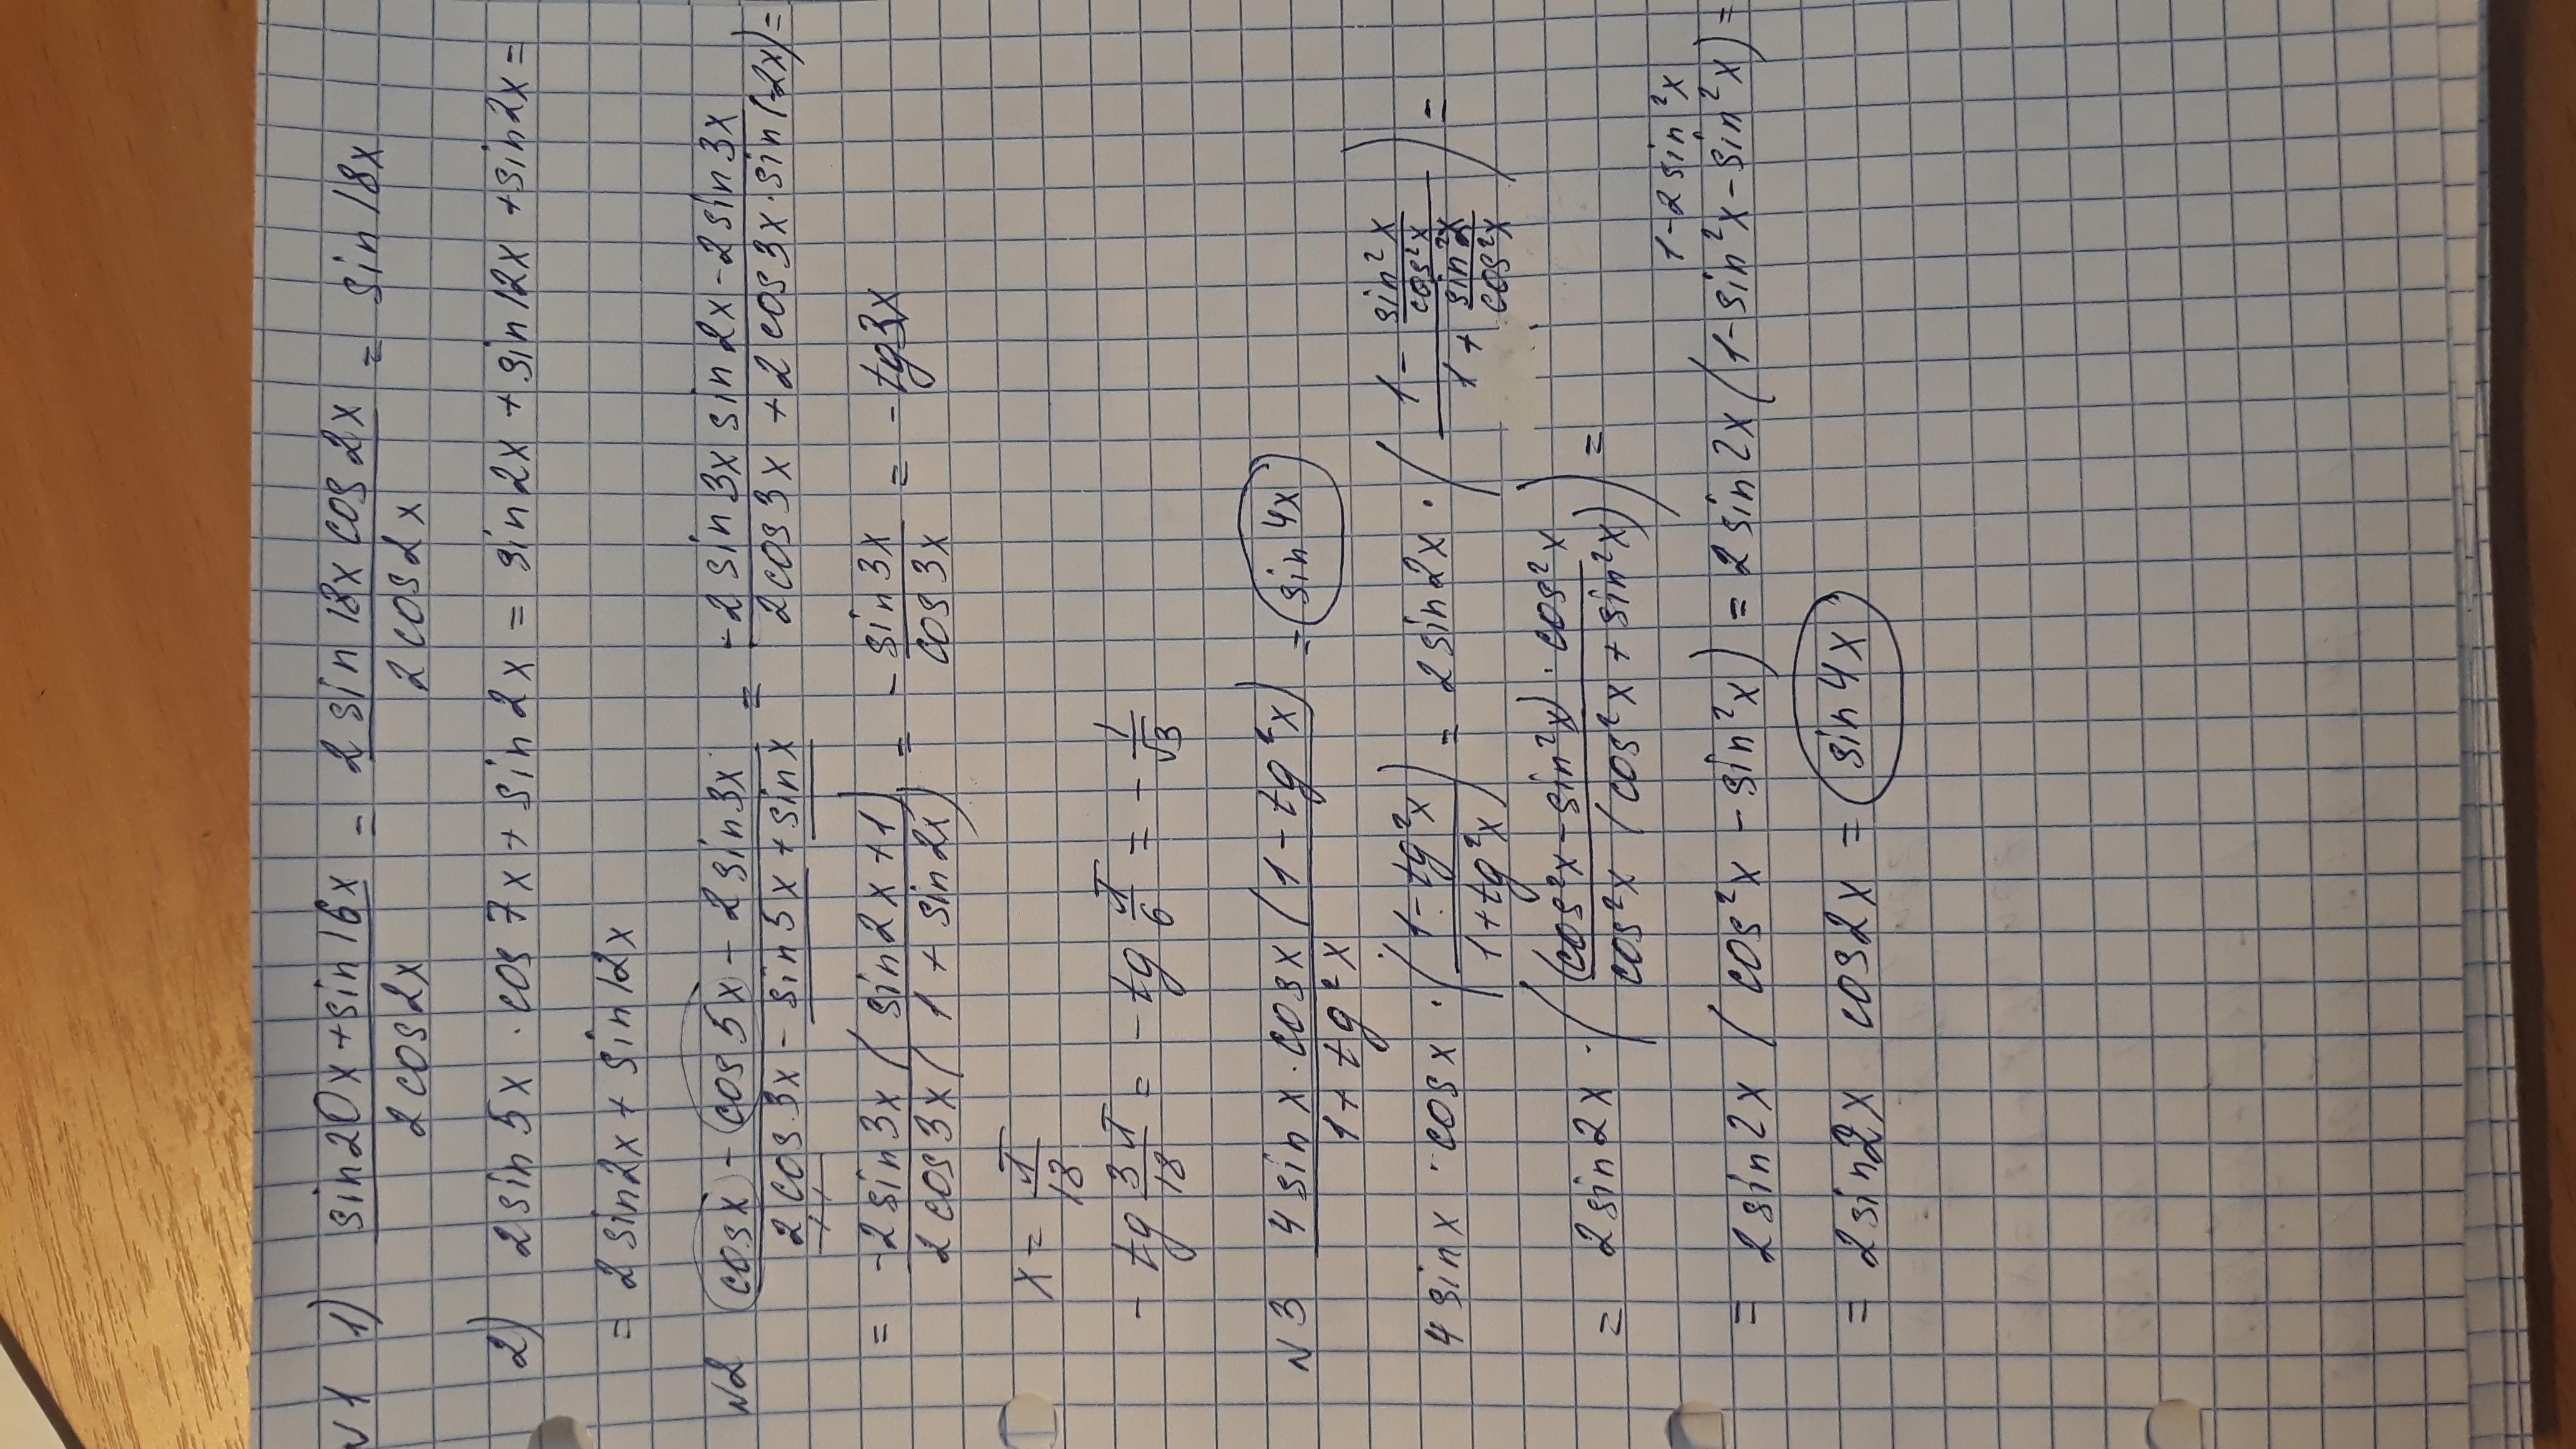 N1 1) (sin20x + sin16x)/(2cos2x) = (2 sin 18x cos 2x)/(2 cos2x) = sin 18x
2) 2sin5x · cos7x + sin2x = sin2x + sin12x + sin2x =
= 2sin2x + sin12x
N2 (cosx - cos5x - 2sin3x)/(2cos3x - sin5x + sinx) = (-2sin3x sin2x - 2sin3x)/(2cos3x + 2cos3x · sin(-2x)) =
= (-2sin3x(sin2x+1))/(2cos3x(1+sin2x)) = - sin3x/cos3x = - tg3x
x = π/18
- tg 3π/18 = - tg π/6 = - 1/√3
N3 (4sinx · cosx(1-tg²x))/(1+tg²x) = sin4x
4sinx · cosx · ((1-tg²x)/(1+tg²x)) = 2sin2x · ((1 - sin²x/cos²x)/(1 + sin²x/cos²x)) =
= 2sin2x · (((cos²x - sin²x) · cos²x)/(cos²x(cos²x + sin²x))) =
1-2sin²x
= 2sin2x (cos²x - sin²x) = 2sin2x (1-sin²x - sin²x) =
= 2sin2x cos2x = sin4x